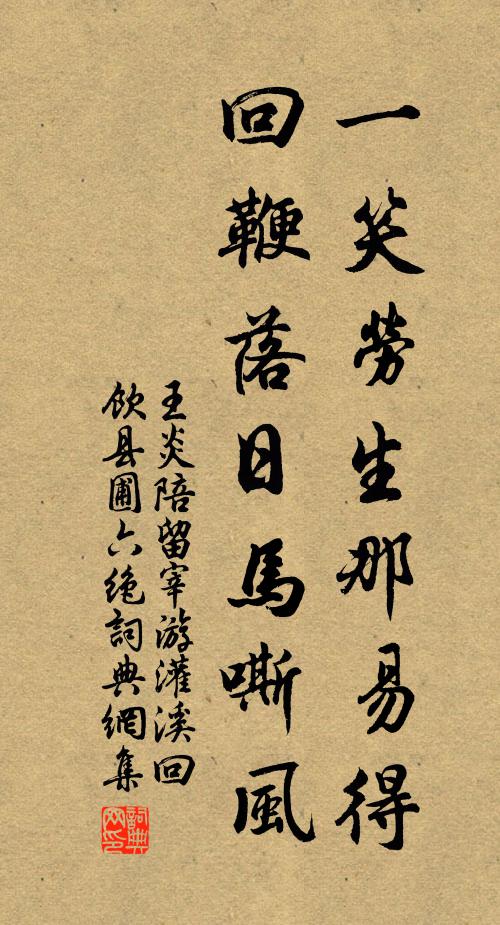 一笑勞生那易得
回鞭落日馬嘶風
王炎陪留宰游灌溪回
飲县圃六绝詞典網集
詞典
网印